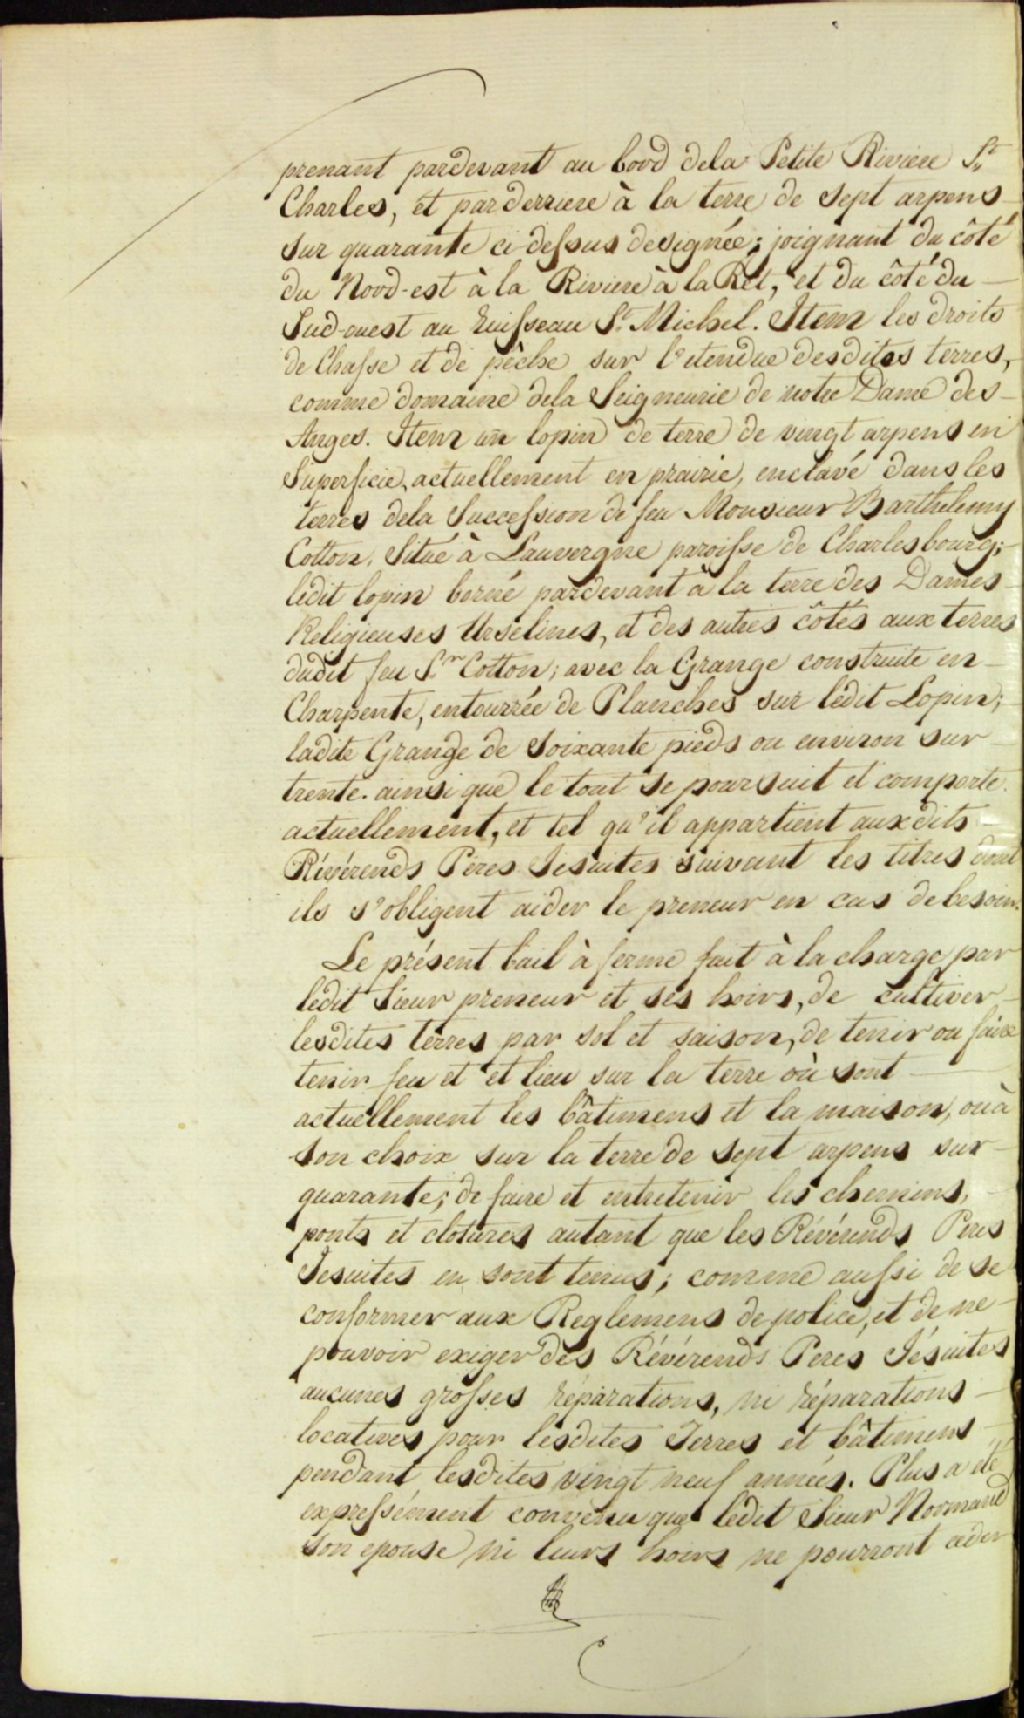 prenant pardevant au bord dela Petite Riviere St.
Charles, et par derriere à la terre de Sept arpens
sur quarante ci dessus designée; joignant du côté
du Nord-est à la Riviere à la Ret, et du côté du
Sud-ouest au ruisseau St. Michel. Item les droits
de Chasse et de pêche sur l'etendue desdites terres,
comme domaine dela Seigneurie de notre Dame des
Anges. Item un lopin de terre de vingt arpens en
Superficie, actuellement en prairie, enclavé dans les
terres dela Succession de feu Monsieur Barthelemy
Cotton, Situé à Lauvergne paroisse de Charlesbourg;
ledit lopin borné pardevant à la terre des Dames
Religieuses Urselines, et des autres côtés aux terres
dudit feu Sr. Cotton; avec la Grange construite en
Charpente, entourrée de Planches sur ledit Lopin;
ladite Grange de Soixante pieds ou environ sur
trente. ainsi que le tout se poursuit et comporte
actuellement, et tel qu'il appartient auxdits
Révérends Peres Jésuites suivant les titres dont
ils s'obligent aider le preneur en cas de besoin.
Le présent bail à ferme fait à la charge par
ledit Sieur preneur et ses hoirs, de cultiver
lesdites terres par sol et saison, de tenir ou faire
tenir feu et et lieu sur la terre où sont
actuellement les bâtimens et la maison, ou à
son choix sur la terre de Sept arpens sur
quarante; de faire et entretenir les chemins,
ponts et clotures autant que les Révérends Peres
Jesuites en sont tenus; comme aussi de se
conformer aux Reglemens de police, et de ne
pouvoir exiger des Révérends Peres Jésuites
aucunes grosses réparations, ni réparations
locatives pour lesdites Terres et bâtimens
pendant lesdites vingt neuf années. Plus a été
expressément convenu que ledit Sieur Normand
son epouse ni leurs hoirs ne pourront ceder